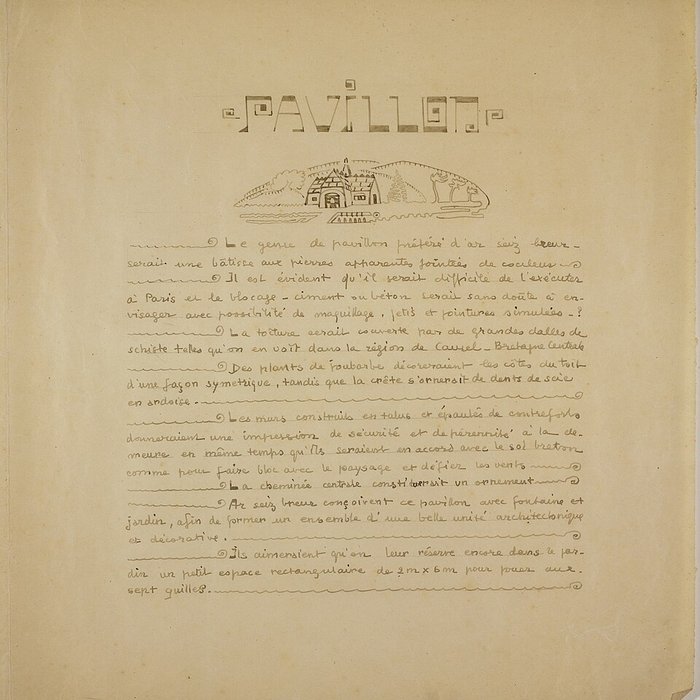 PAVILLON
Le genre de pavillon préféré d'ar seiz breur_
serait une bâtisse aux pierres apparentes jointées de couleur
Il est évident qu'il serait difficile de l'exécuter
à Paris et le blocage - ciment ou béton serait sans doute à en-
visager avec possibilité de maquillage, jetis et jointures simulées - ?
La toiture serait couverte par de grandes dalles de
schiste telles qu'on en voit dans la région de Caurel - Bretagne Centrale
Des plants de joubarbe décoreraient les côtés du toit
d'une façon symetrique, tandis que la crête s'ornerait de dents de scie
en ardoise.
Les murs construits en talus et épaulés de contreforts
donneraient une impression de sécurité et de pérennité à la de-
meure en même temps qu'ils seraient en accord avec le sol breton
comme pour faire bloc avec le paysage et défier les vents
La cheminée centrale constituerait un ornement
Ar seiz breur conçoivent ce pavillon avec fontaine et
jardin, afin de former un ensemble d'une belle unité architectonique
et décorative.
Ils aimeraient qu'on leur réserve encore dans le jar-
din un petit espace rectangulaire de 2m x 6m pour jouer aux
sept quilles.